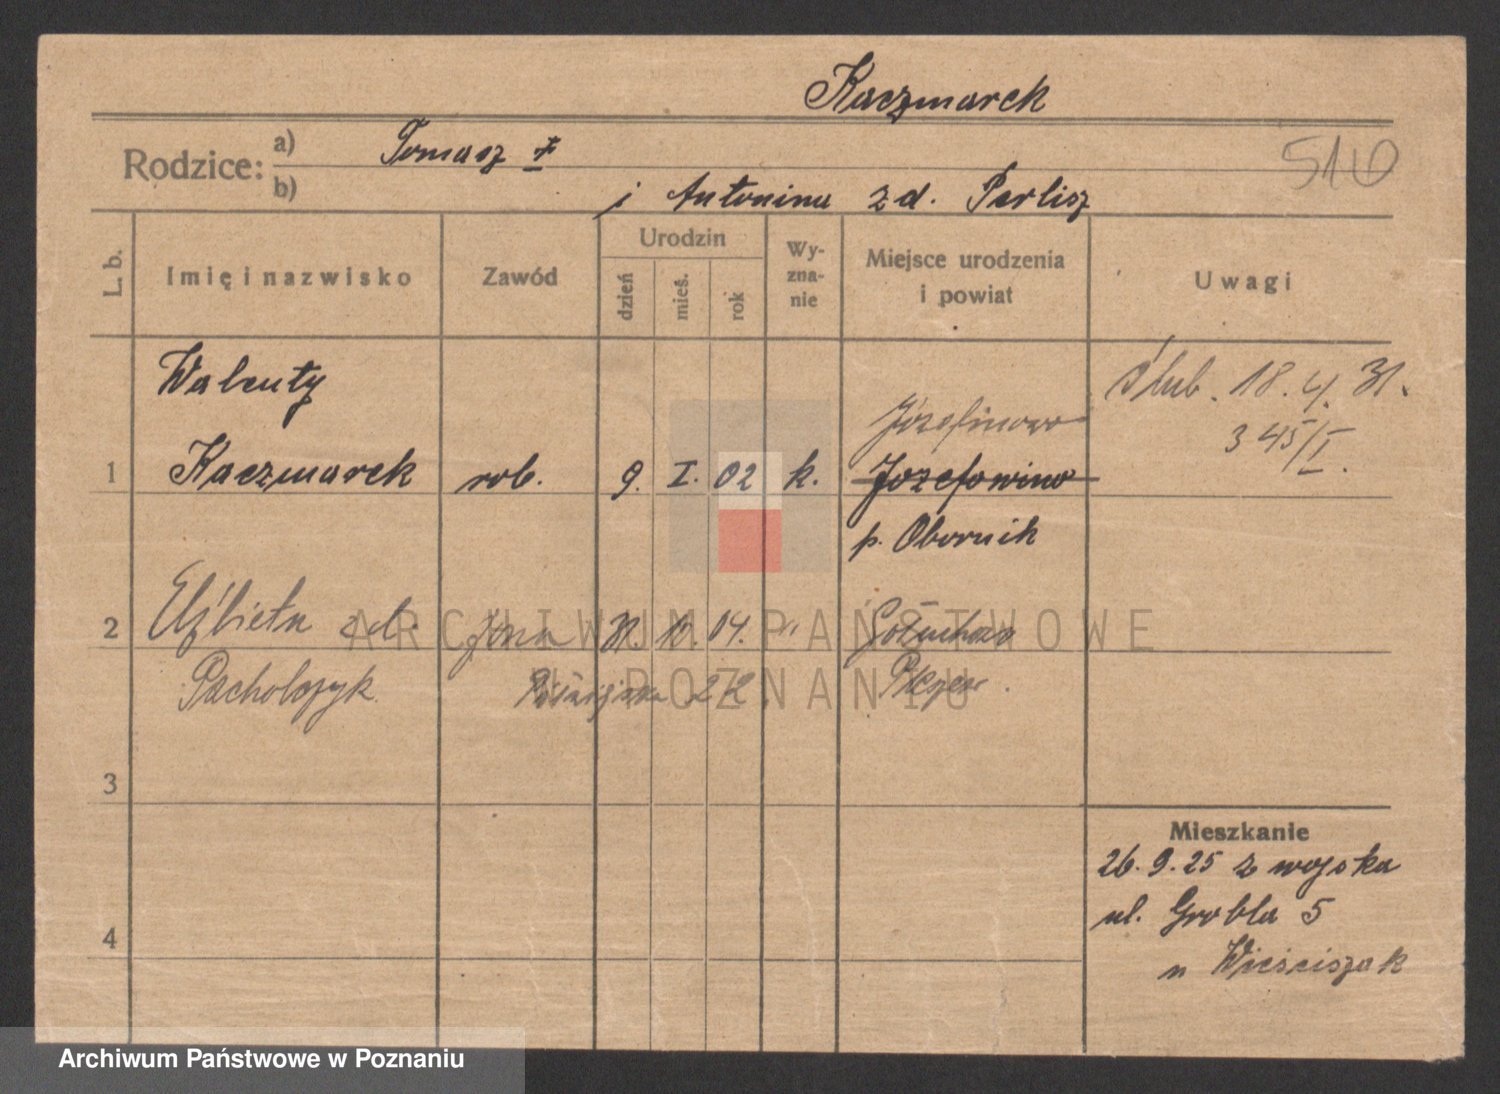 Kaczmarek
Rodzice:
a) Tomasz
b) i Antonina z d. Perlisz
5110
L. b.
Imię i nazwisko
Zawód
Urodzin
dzień
mieś.
rok
Wy-
zna-
nie
Miejsce urodzenia
i powiat
Uwagi
Walenty
1 Kaczmarek rob. 9. I. 02 k.
Józefinowo
Jozefowino
p. Obornik
ślub. 18.4.31.
345/I.
2 Elżbieta z d. żona 31. 10. 04. "
Gołuchowo
Pacholczyk 22
3
4
Mieszkanie
26.9.25 z wojska
ul. Grobla 5
u Wieściszak
ARCHIWUM PAŃSTWOWE
W POZNANIU
Archiwum Państwowe w Poznaniu